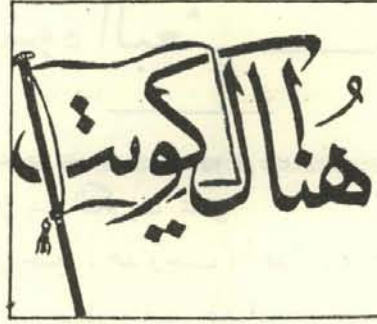 هُنا الكويت